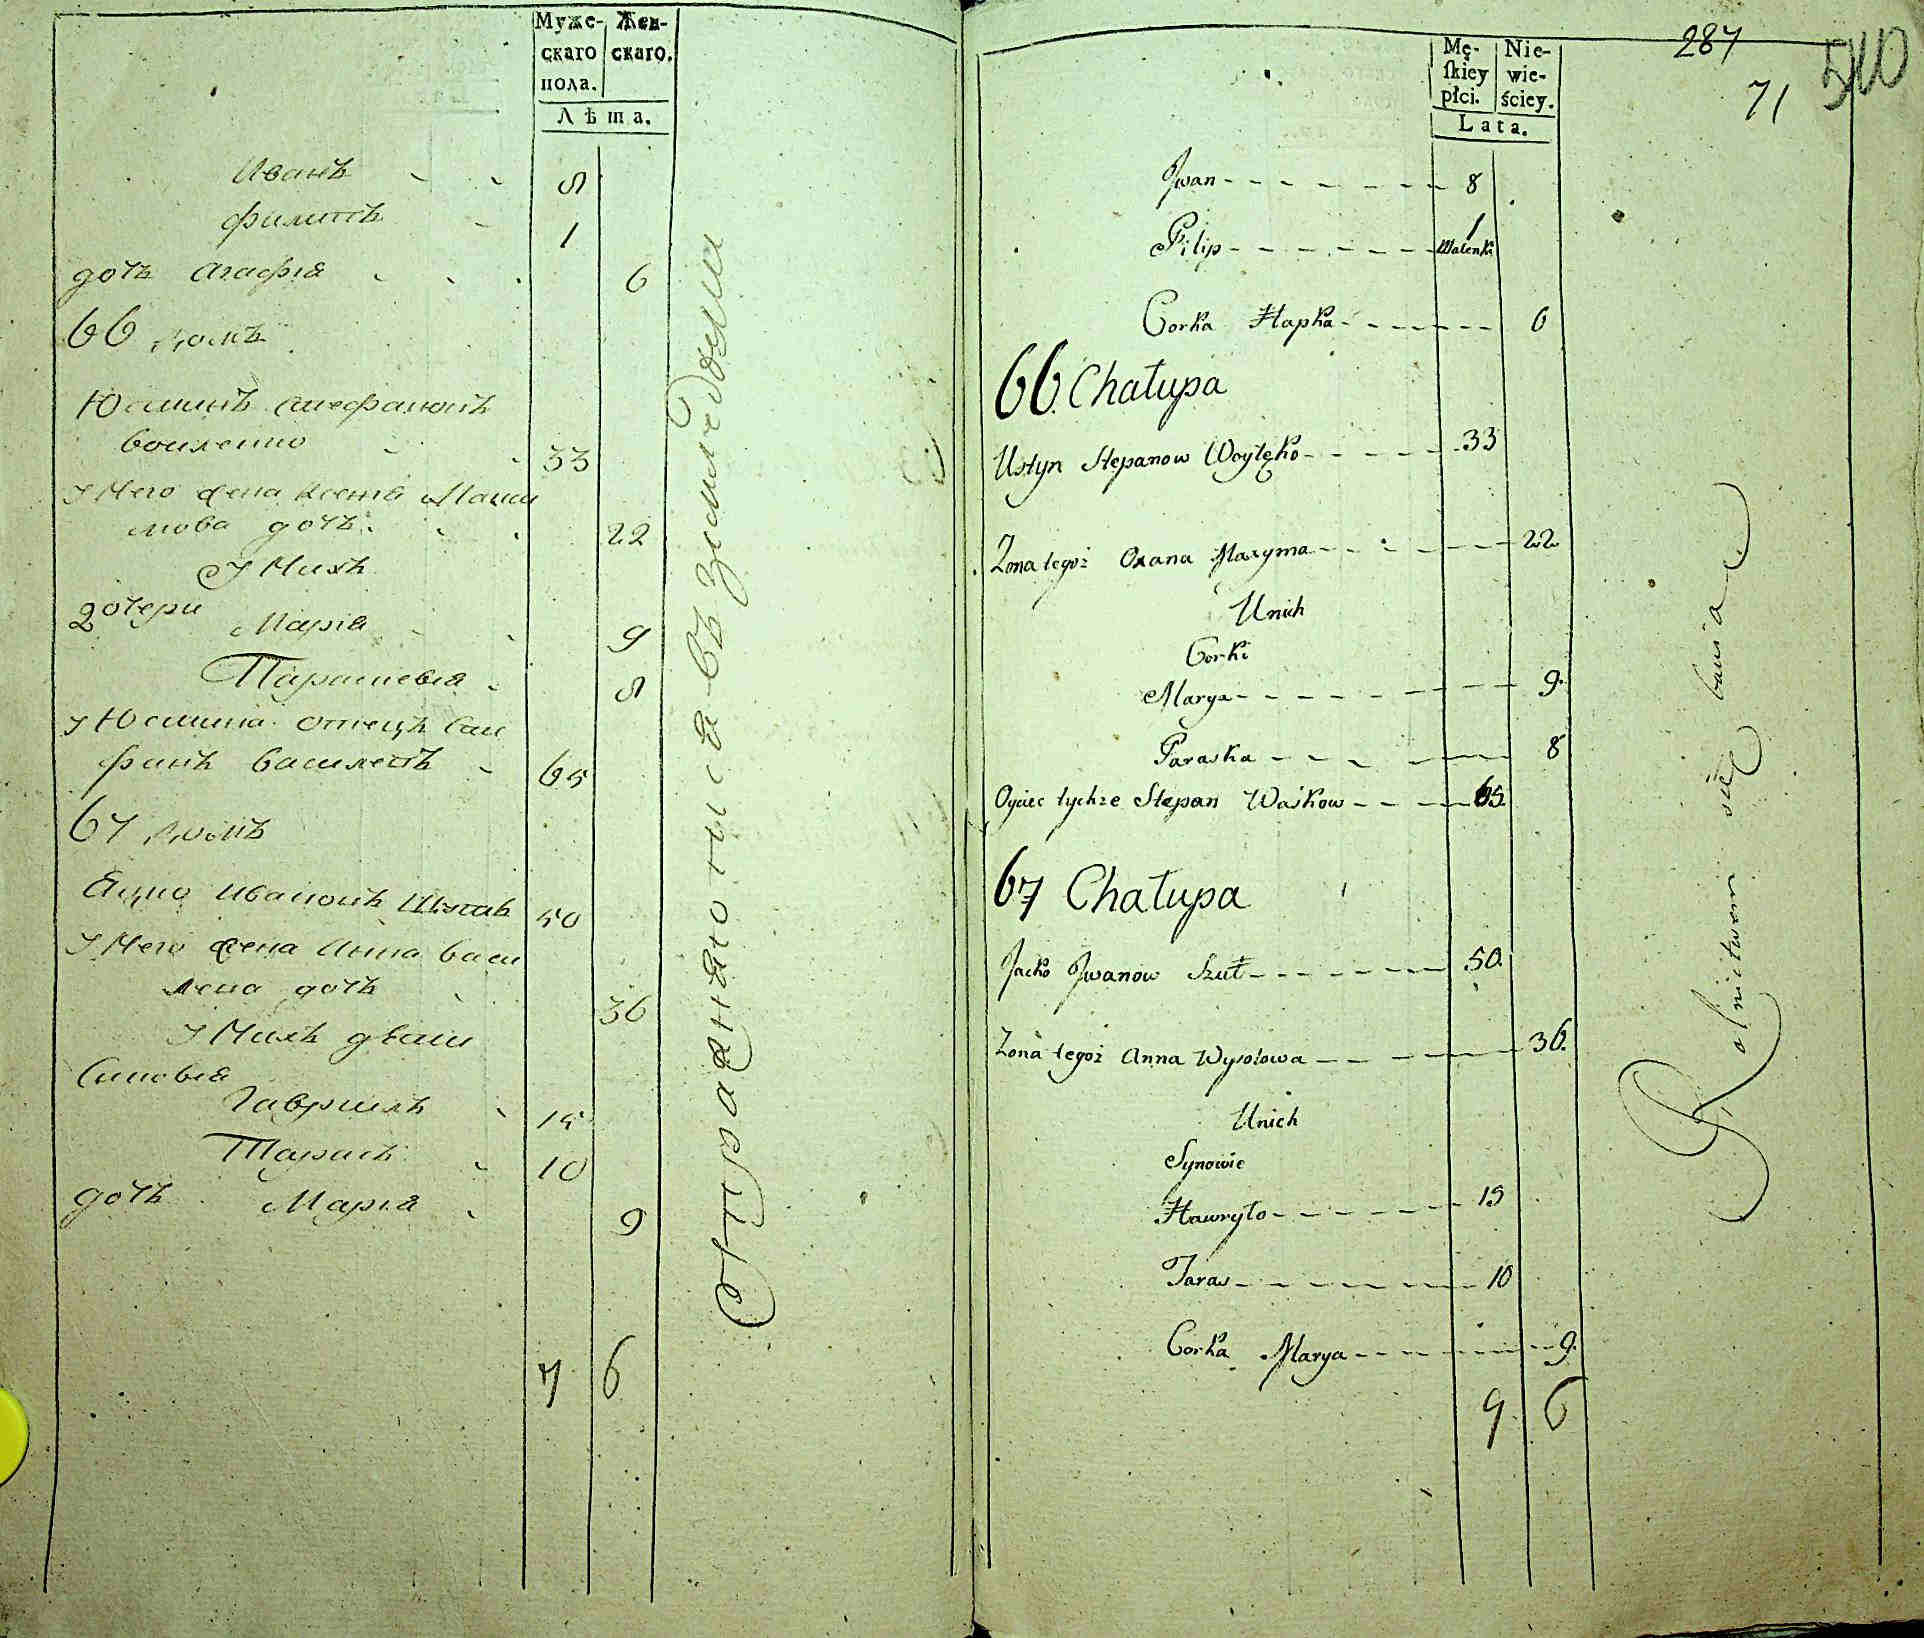 Муже- Жен-
скаго скаго.
пола.
Лѣта.
Иванъ 8
Филипъ 1
дочь Агафія 6
66 домъ
Юстинъ Стефановъ
33
У Него жена Ксенія Макси
мова дочь 22
У Нихъ
дочери Марія 9
Параскевія 8
У Юстина отецъ Сте
фанъ Василевъ 65
67 домъ
Яцко Ивановъ Шутъ 50
У Него жена Анна Васи
лева дочь 36
У Нихъ дѣти
Синовья
Гавриилъ 15
Тарасъ 10
дочь Марія 9
7 6
упражняются въ земледелии
287
71
540
Mę- Nie-
skiey wie-
płci. ściey.
Lata.
Jwan 8
Filip 1
Corka Hapka 6
66. Chałupa
Ustyn Stepanow Woytęko 33
Zona tegoż Oxana Maxyma 22
Unich
Corki
Marya 9.
Paraska 8
Oyciec tychże Stepan Waśkow 65
67 Chałupa
Jacko Jwanow Szut 50.
Zona tegoż Anna Wysołowa 36.
Unich
Synowie
Hawryło 15
Taras 10
Corka Marya 9.
9 6
Rolnictwem się bawia